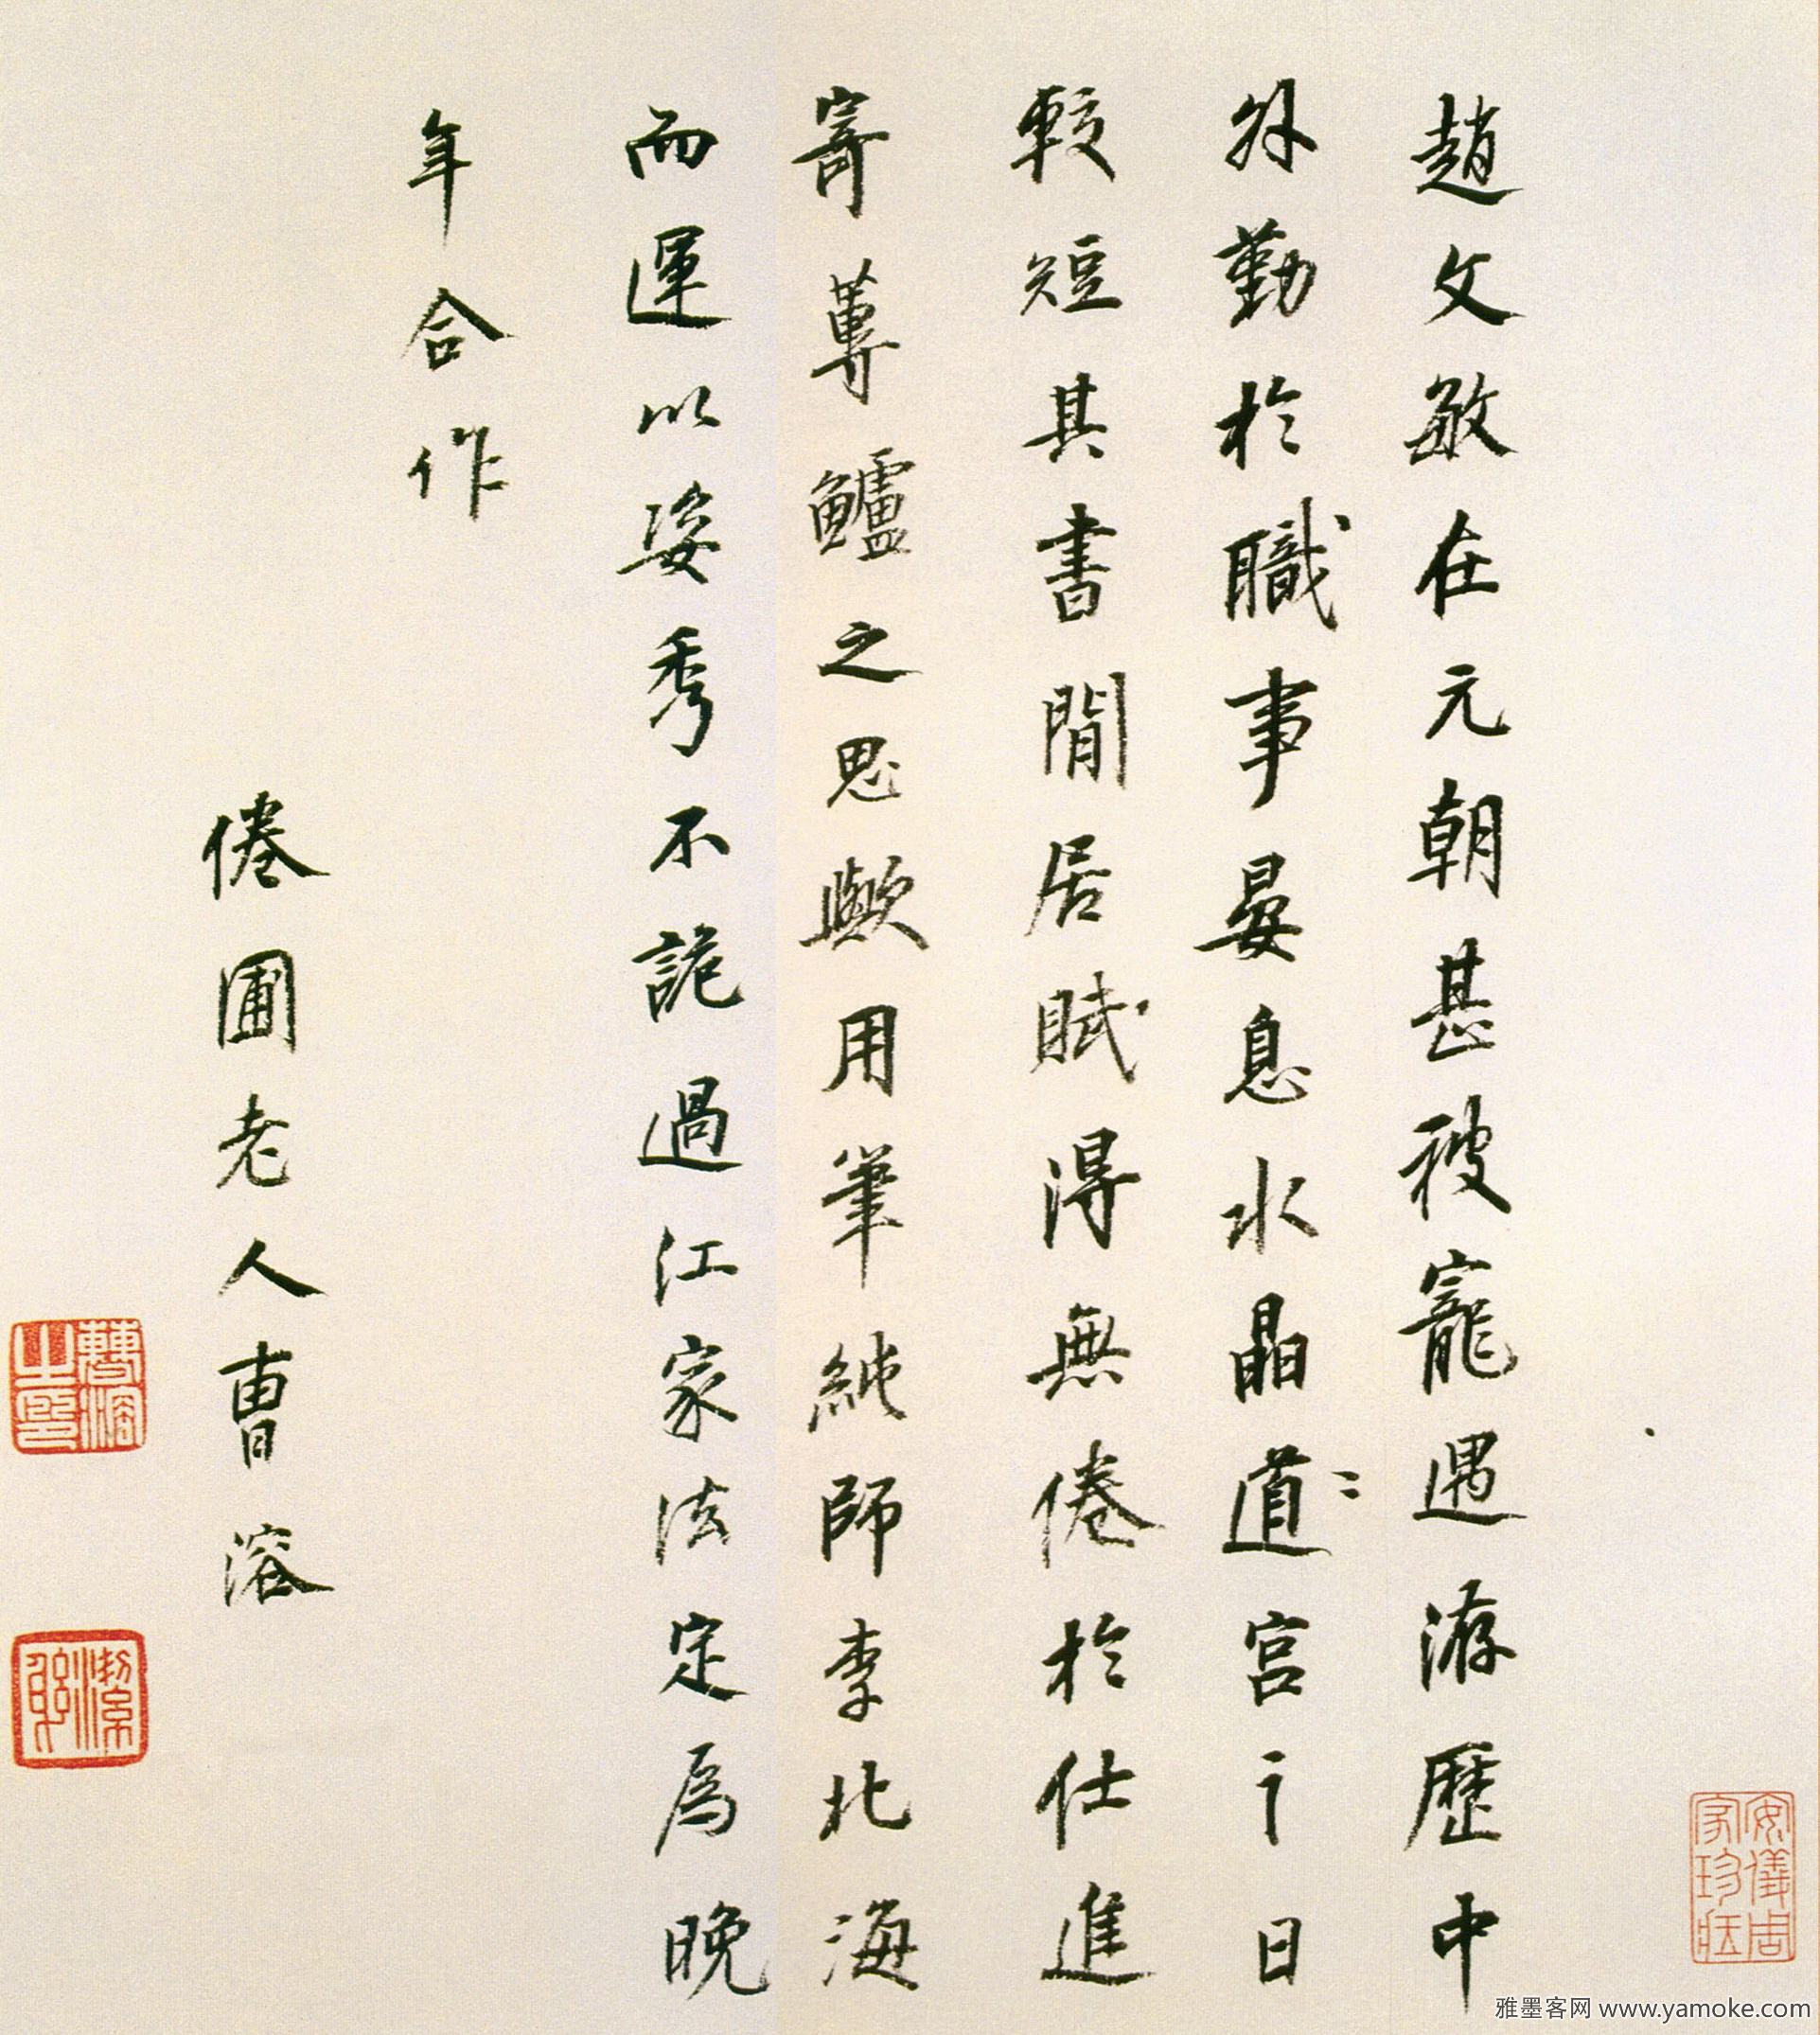 趙文敏在元朝甚被寵遇游歷中
外勤於職事晏息水晶道宮之日
較短其書閒居賦得無倦於仕進
寄蓴鱸之思歟用筆純師李北海
而運以姿秀不詭過江家法定爲晚
年合作
倦圃老人曹溶
曹溶之印
潔躬
安儀周家珍藏
雅墨客网 www.yamoke.com